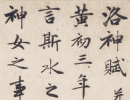 洛神賦并
黃初三年
言斯水之
神女之事